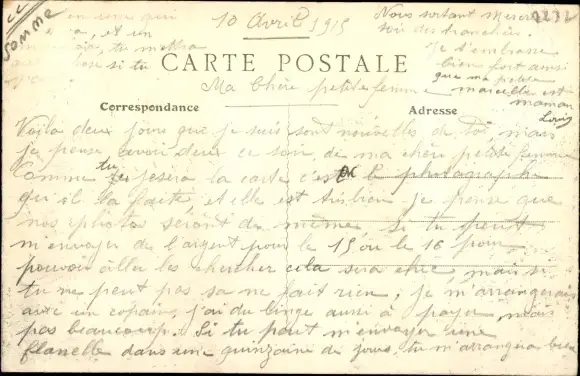 Somme
10 Avril 1915
Nous sortant Mercredi
soir des tranchées.
Je t'embrasse
bien fort ainsi
que ma petite
marcelle et
maman
Louis
CARTE POSTALE
Ma Chère petite femme
Correspondance
Adresse
Voila deux jours que je suis sont nouvelles de toi, mais
je pense avoir deux ce soir, de ma chère petite femme
Comme tu le photographe
qui la faite, et elle est très bien je pense que
nos photos seront de même. Si tu peut
m'envoyer de l'argent pour le 15 ou le 16 pour
pouvoir aller les chercher cela sera chic, mais si
tu ne peut pas sa ne fait rien, je m'arrangerais
avec un copain, j'ai du linge aussi a payer, mais
pas beaucoup. Si tu peut m'envoyer une
flanelle dans une quinzaine de jours, tu m'arrangera bien